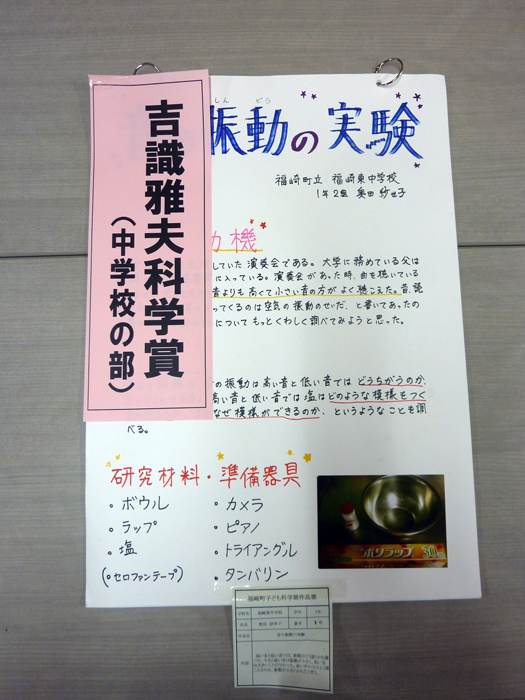 吉識雅夫科学賞
(中学校の部)
振動の実験
しん どう
福崎町立 福崎東中学校
1年2組 奥田 紗世子
機
していた演奏会である。大学に務めている父は
に入っている。演奏会があった時、曲を聴いている
音よりも高くて小さい音の方がよく聴こえた。昔、認
ってくるのは空気の振動のせいだ、と書いてあったの
についてもっとくわしく調べてみようと思った。
の振動は高い音と低い音ではどうちがうのか、
高い音と低い音では塩はどのような模様をつく
なぜ模様ができるのか、というようなことも調
べる。
研究材料・準備器具
・ボウル
・ラップ
・塩
(・セロファンテープ)
・カメラ
・ピアノ
・トライアングル
・タンバリン
ポリラップ 30
福崎町子ども科学展作品票